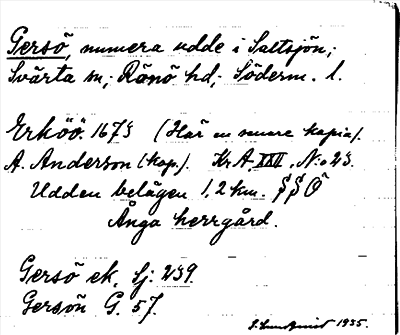 Gersö, numera udde i Saltsjön;
Svärta sn; Rönö hd; Söderm. l.
Erköö. 1673 (Här en senare kopia).
A. Anderson (kop.). Kr A, XXII, N:o 23.
Udden belägen 1,2 km. SSO
Ånga herrgård.
Gersö ek. Sj. 239.
Gersön G. 57.
S. Lundqvist 1935.